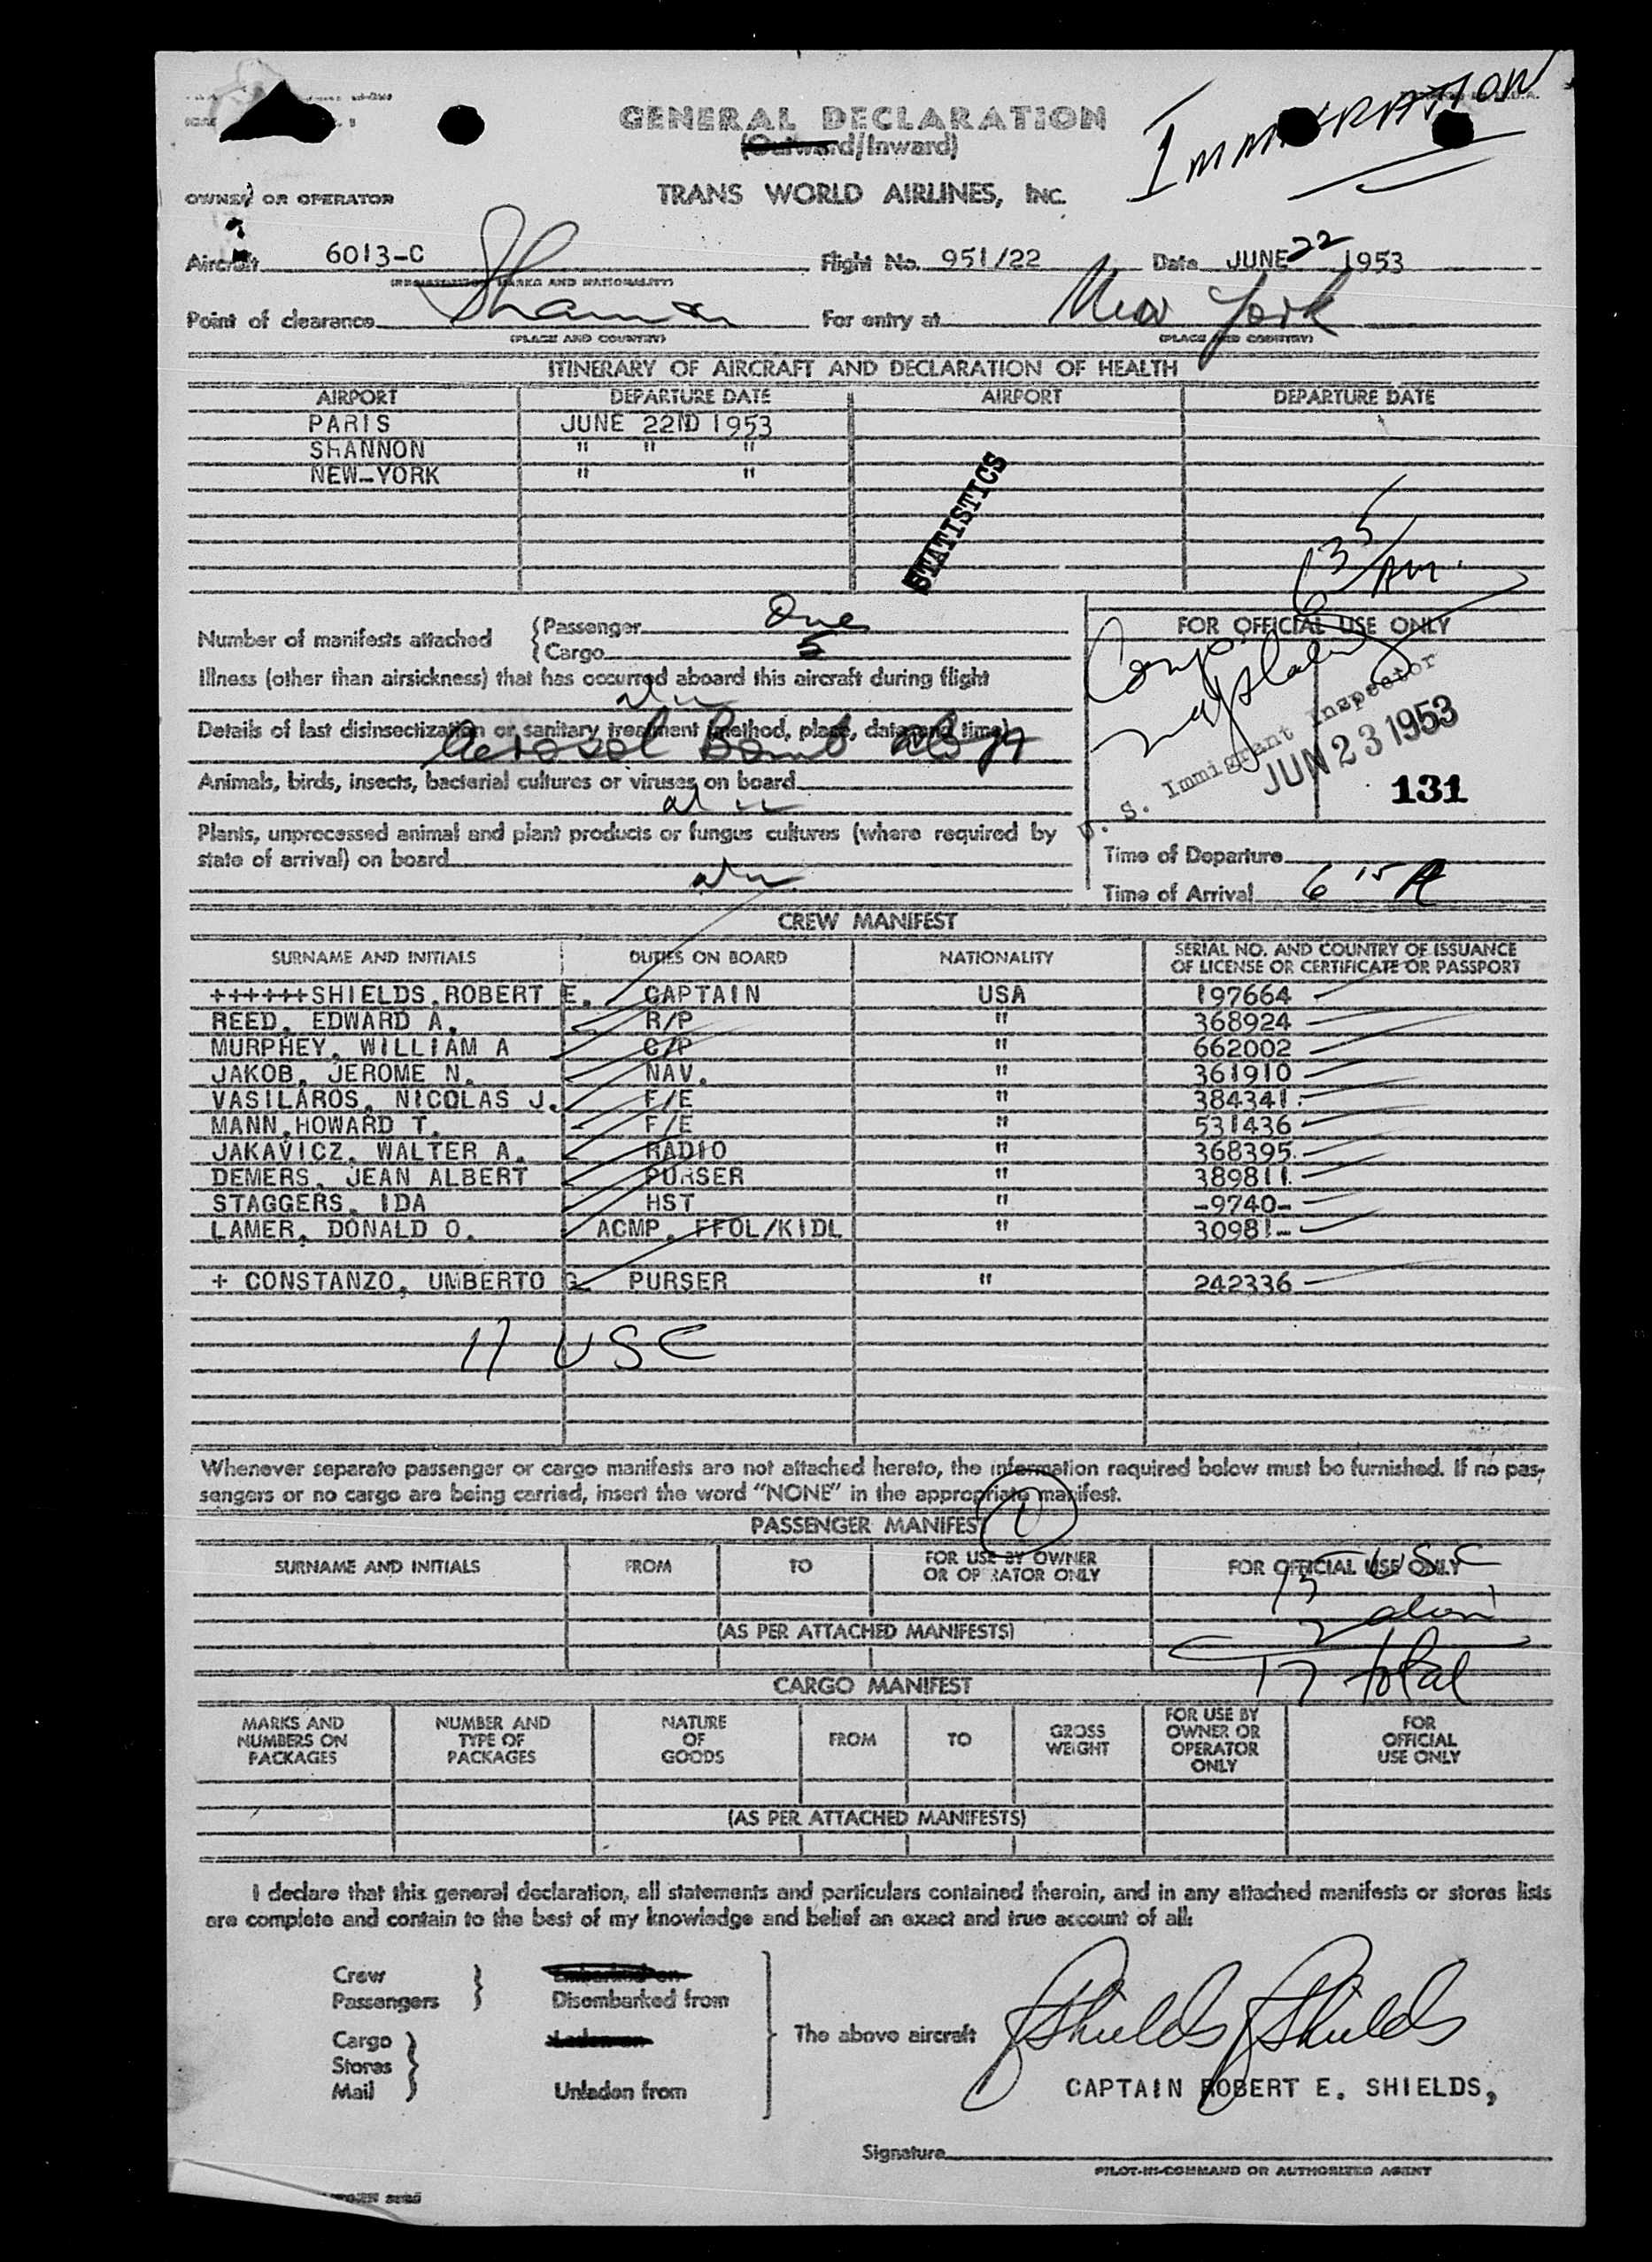 IMMIGRATION
GENERAL DECLARATION
(Outward/Inward)
OWNER OR OPERATOR TRANS WORLD AIRLINES, Inc.
Aircraft 6013-C Flight No. 951/22 Date JUNE 22 1953
(REGISTRATION MARKS AND NATIONALITY)
Point of clearance Shannon For entry at New York
(PLACE AND COUNTRY) (PLACE AND COUNTRY)
ITINERARY OF AIRCRAFT AND DECLARATION OF HEALTH
AIRPORT DEPARTURE DATE AIRPORT DEPARTURE DATE
PARIS JUNE 22ND 1953
SHANNON " " "
NEW-YORK " "
STATISTICS
6 35/AM.
Number of manifests attached {Passenger One
{Cargo 5
FOR OFFICIAL USE ONLY
Illness (other than airsickness) that has occurred aboard this aircraft during flight
Details of last disinsectization or sanitary treatment (method, place, date and time)
Aerosol Bomb
U. S. Immigrant Inspector
JUN 23 1953
131
Animals, birds, insects, bacterial cultures or viruses on board
Plants, unprocessed animal and plant products or fungus cultures (where required by
state of arrival) on board
Time of Departure
Time of Arrival 6 15 A
CREW MANIFEST
SURNAME AND INITIALS DUTIES ON BOARD NATIONALITY SERIAL NO. AND COUNTRY OF ISSUANCE
OF LICENSE OR CERTIFICATE OR PASSPORT
++++++SHIELDS.ROBERT E. CAPTAIN USA 197664
REED, EDWARD A. R/P " 368924
MURPHEY, WILLIAM A C/P " 662002
JAKOB, JEROME N. NAV. " 361910
VASILAROS, NICOLAS J. F/E " 384341.
MANN,HOWARD T. F/E " 531436
JAKAVICZ, WALTER A. RADIO " 368395.
DEMERS, JEAN ALBERT PURSER " 389811.
STAGGERS, IDA HST " -9740-
LAMER, DONALD O. ACMP. FFOL/KIDL " 30981-
+ CONSTANZO, UMBERTO G. PURSER " 242336
11 USC
Whenever separate passenger or cargo manifests are not attached hereto, the information required below must be furnished. If no pas-
sengers or no cargo are being carried, insert the word "NONE" in the appropriate manifest.
PASSENGER MANIFEST 1
SURNAME AND INITIALS FROM TO FOR USE BY OWNER
OR OPERATOR ONLY FOR OFFICIAL USE ONLY
15 USC
2 alien
(AS PER ATTACHED MANIFESTS)
17 total
CARGO MANIFEST
MARKS AND
NUMBERS ON
PACKAGES
NUMBER AND
TYPE OF
PACKAGES
NATURE
OF
GOODS
FROM TO GROSS
WEIGHT
FOR USE BY
OWNER OR
OPERATOR
ONLY
FOR
OFFICIAL
USE ONLY
(AS PER ATTACHED MANIFESTS)
I declare that this general declaration, all statements and particulars contained therein, and in any attached manifests or stores lists
are complete and contain to the best of my knowledge and belief an exact and true account of all:
Crew
Passengers
Embarked on
Disembarked from
Cargo
Stores
Mail
Laden on
Unladen from
The above aircraft Shields Shields
CAPTAIN ROBERT E. SHIELDS,
Signature
PILOT-IN-COMMAND OR AUTHORIZED AGENT